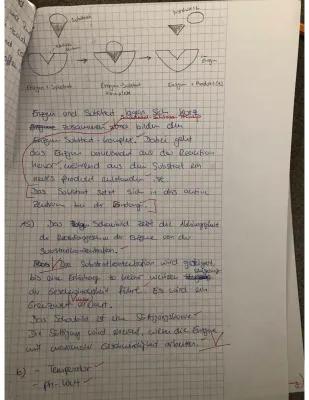 Substrat
Produkt(e)
Enzym
Enzym + Substrat
Enzym-Substrat
Komplex
Enzym + Produkt(e)
Enzym und Substrat lagern sich kurz
zusammen bilden den
Enzym-Substrat-Komplex. Dabei geht
das Enzym unverändert aus der Reaktion
hervor, während aus dem Substrat ein
neues Produkt entstanden ist.
Das Substrat setzt sich in das active
Zentrum bei der Bindung.
1a) Das Schaubild zeigt die Abhängigkeit
der Reaktionsgeschw. der Enzyme von der
Substratkonzentration.
Die Substratkonzentration wird gesteigert
bis eine Erhöhung zu keiner weiteren
der Geschwindigkeit führt. Es wird ein
Grenzwert erreicht.
Das Schaubild ist eine Sättigungskurve.
Die Sättigung wird erreicht, wenn die Enzyme
mit maximaler Geschwindigkeit arbeiten.
b) - Temperatur
- pH-Wert